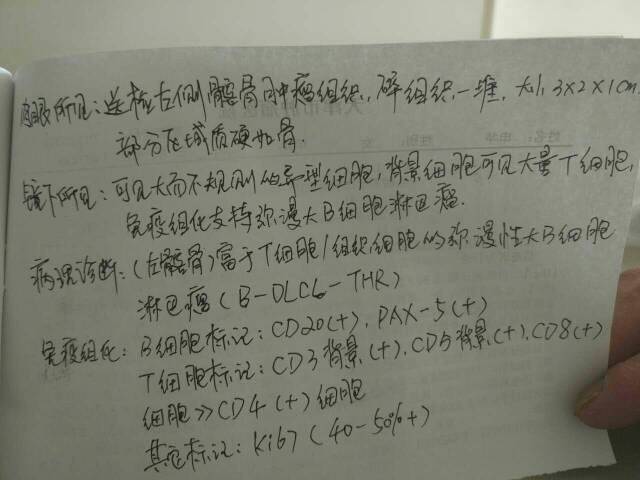 肉眼所见:送检左侧髂骨肿瘤组织,碎组织一堆,大小3×2×1cm.
部分区域质硬如骨.
镜下所见:可见大而不规则的异型细胞,背景细胞可见大量T细胞,
免疫组化支持弥漫大B细胞淋巴瘤.
病理诊断:(左髂骨)富于T细胞/组织细胞的弥漫性大B细胞
淋巴瘤(B-DLCL-THR)
免疫组化:B细胞标记:CD20(+),PAX-5(+)
T细胞标记:CD3背景(+),CD5背景(+),CD8(+)
细胞≫CD4(+)细胞
其它标记:Ki67(40-50%+)